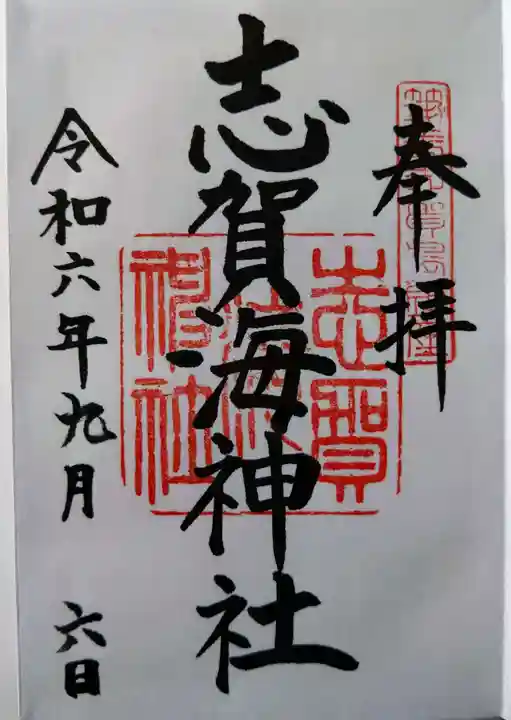 奉拝
志賀海神社
志賀
海
神社
令和六年九月 六日